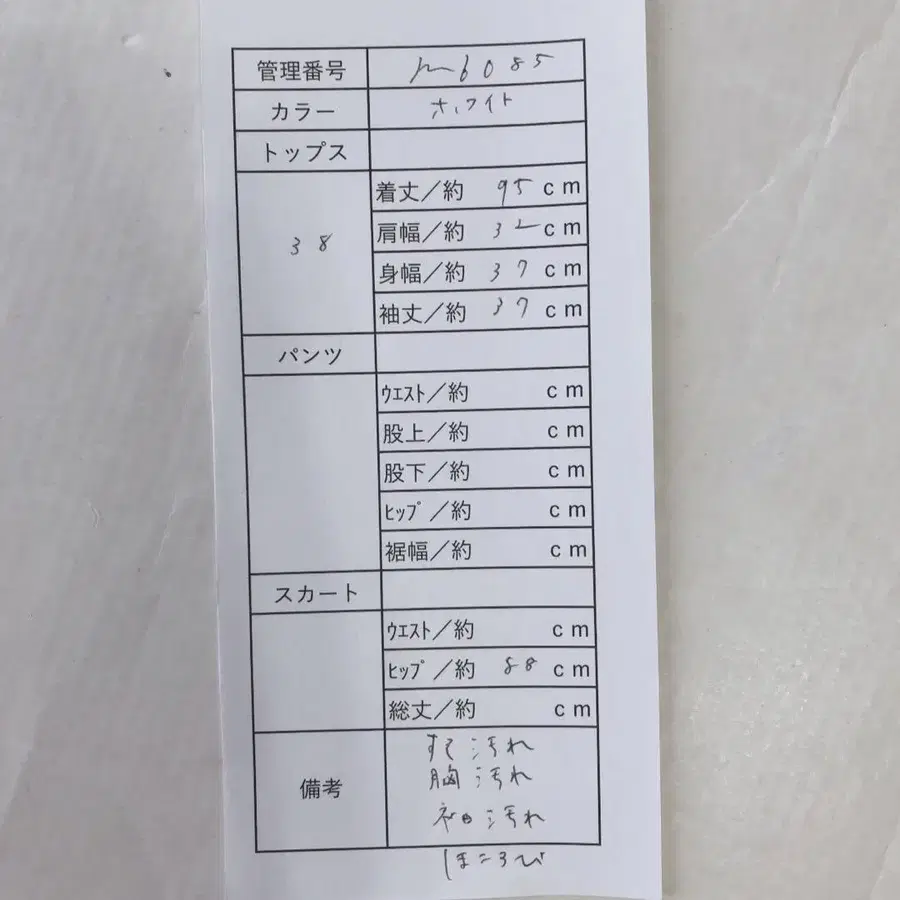 管理番号 m6085
カラー ホワイト
トップス
38
着丈/約 95 cm
肩幅/約 32 cm
身幅/約 37 cm
袖丈/約 37 cm
パンツ
ウエスト/約 cm
股上/約 cm
股下/約 cm
ヒップ/約 cm
裾幅/約 cm
スカート
ウエスト/約 cm
ヒップ/約 88 cm
総丈/約 cm
備考
すそ汚れ
胸汚れ
袖汚れ
ほころび